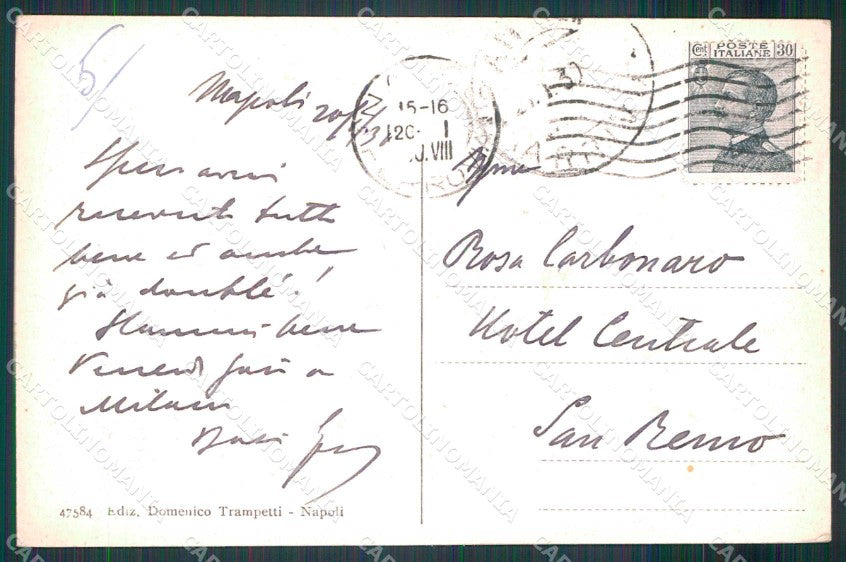 Napoli 20/1/30
Spero avrai
ricevuto tutto
bene ed anche
già doublé!
Stammi bene
Venerdì sarò a
Milano
Baci
47584 Ediz. Domenico Trampetti - Napoli
15-16
20- I
VIII
Cent. POSTE ITALIANE 30
Rosa Carbonaro
Hotel Centrale
San Remo
CARTOLINOMANIA